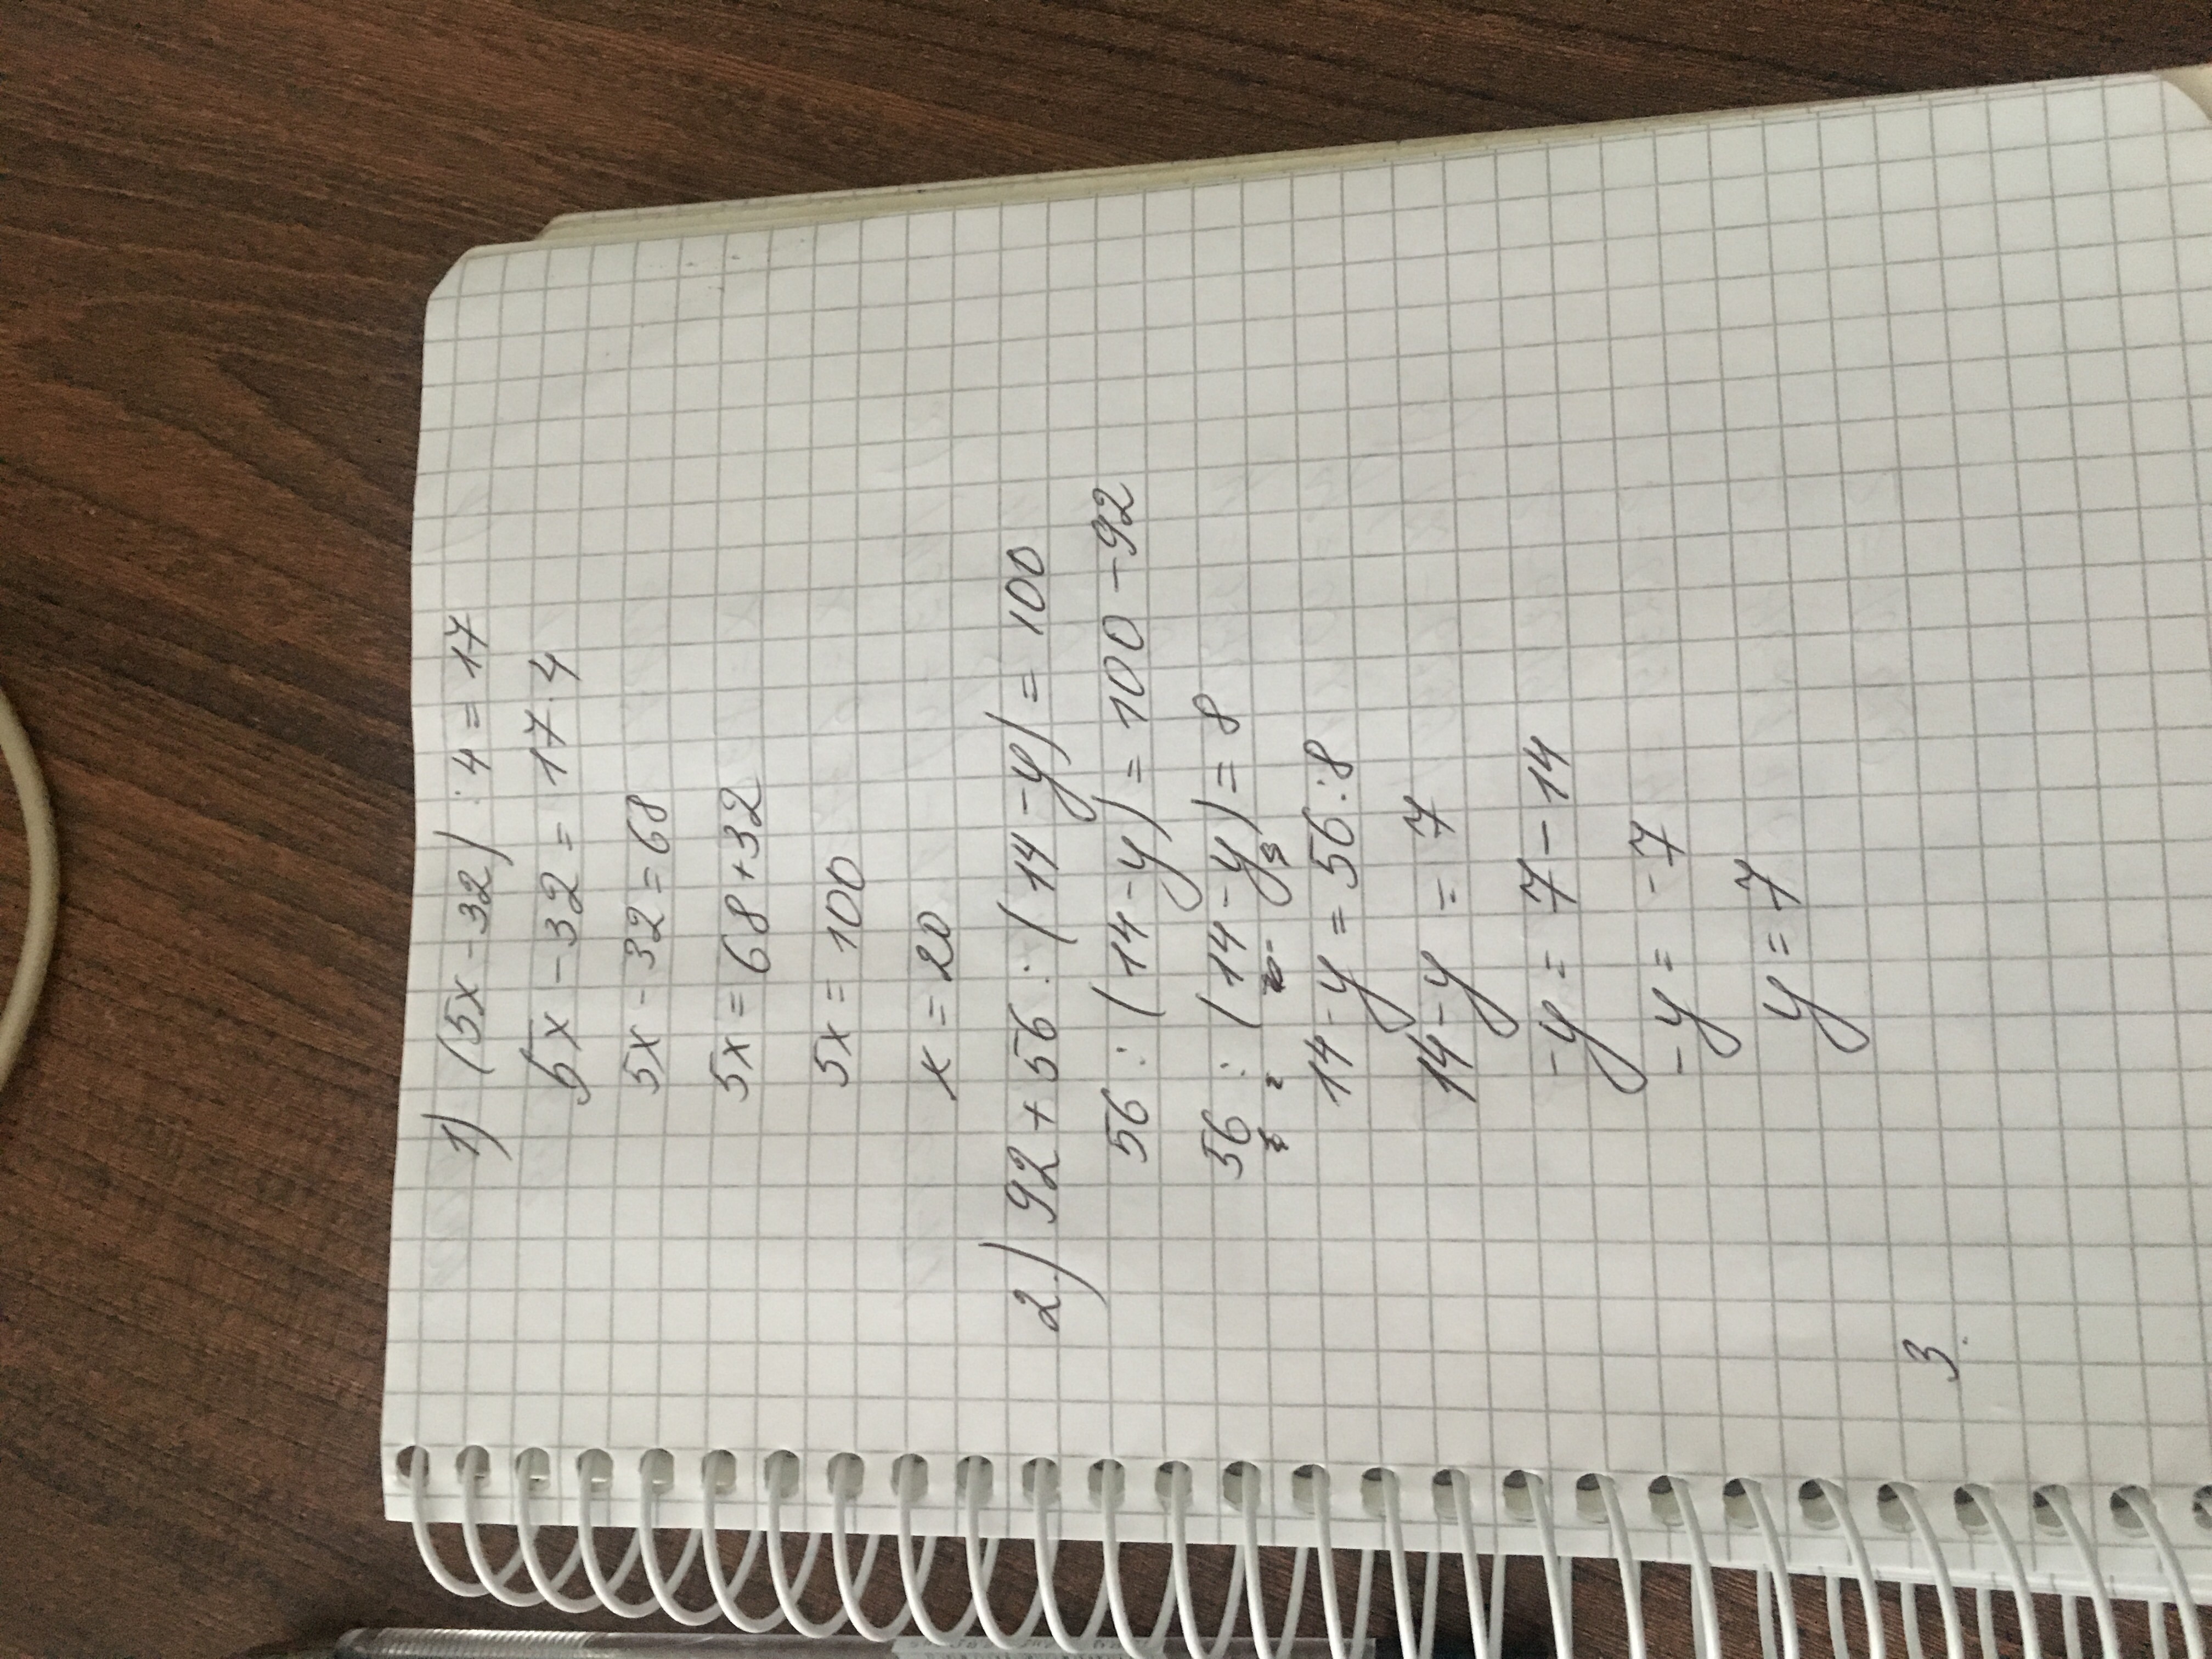 1) (5x - 32) : 4 = 17
5x - 32 = 17 · 4
5x - 32 = 68
5x = 68 + 32
5x = 100
x = 20
2) 92 + 56 : (14 - y) = 100
56 : (14 - y) = 100 - 92
56 : (14 - y) = 8
14 - y = 56 : 8
14 - y = 7
-y = 7 - 14
-y = -7
y = 7
3.